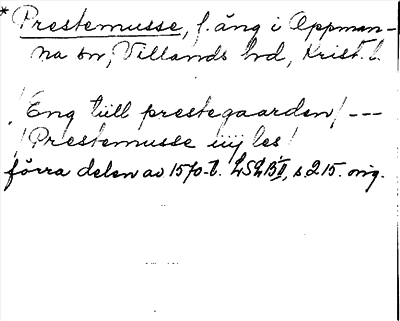 * Prestemusse, f. äng i Oppman-
na sn, Villands hd, Krist. l.
/Eng till prestegaarden/ ---
/Prestemusse iiij les/
förra delen av 1570-t. LSLB II, s. 215. orig.